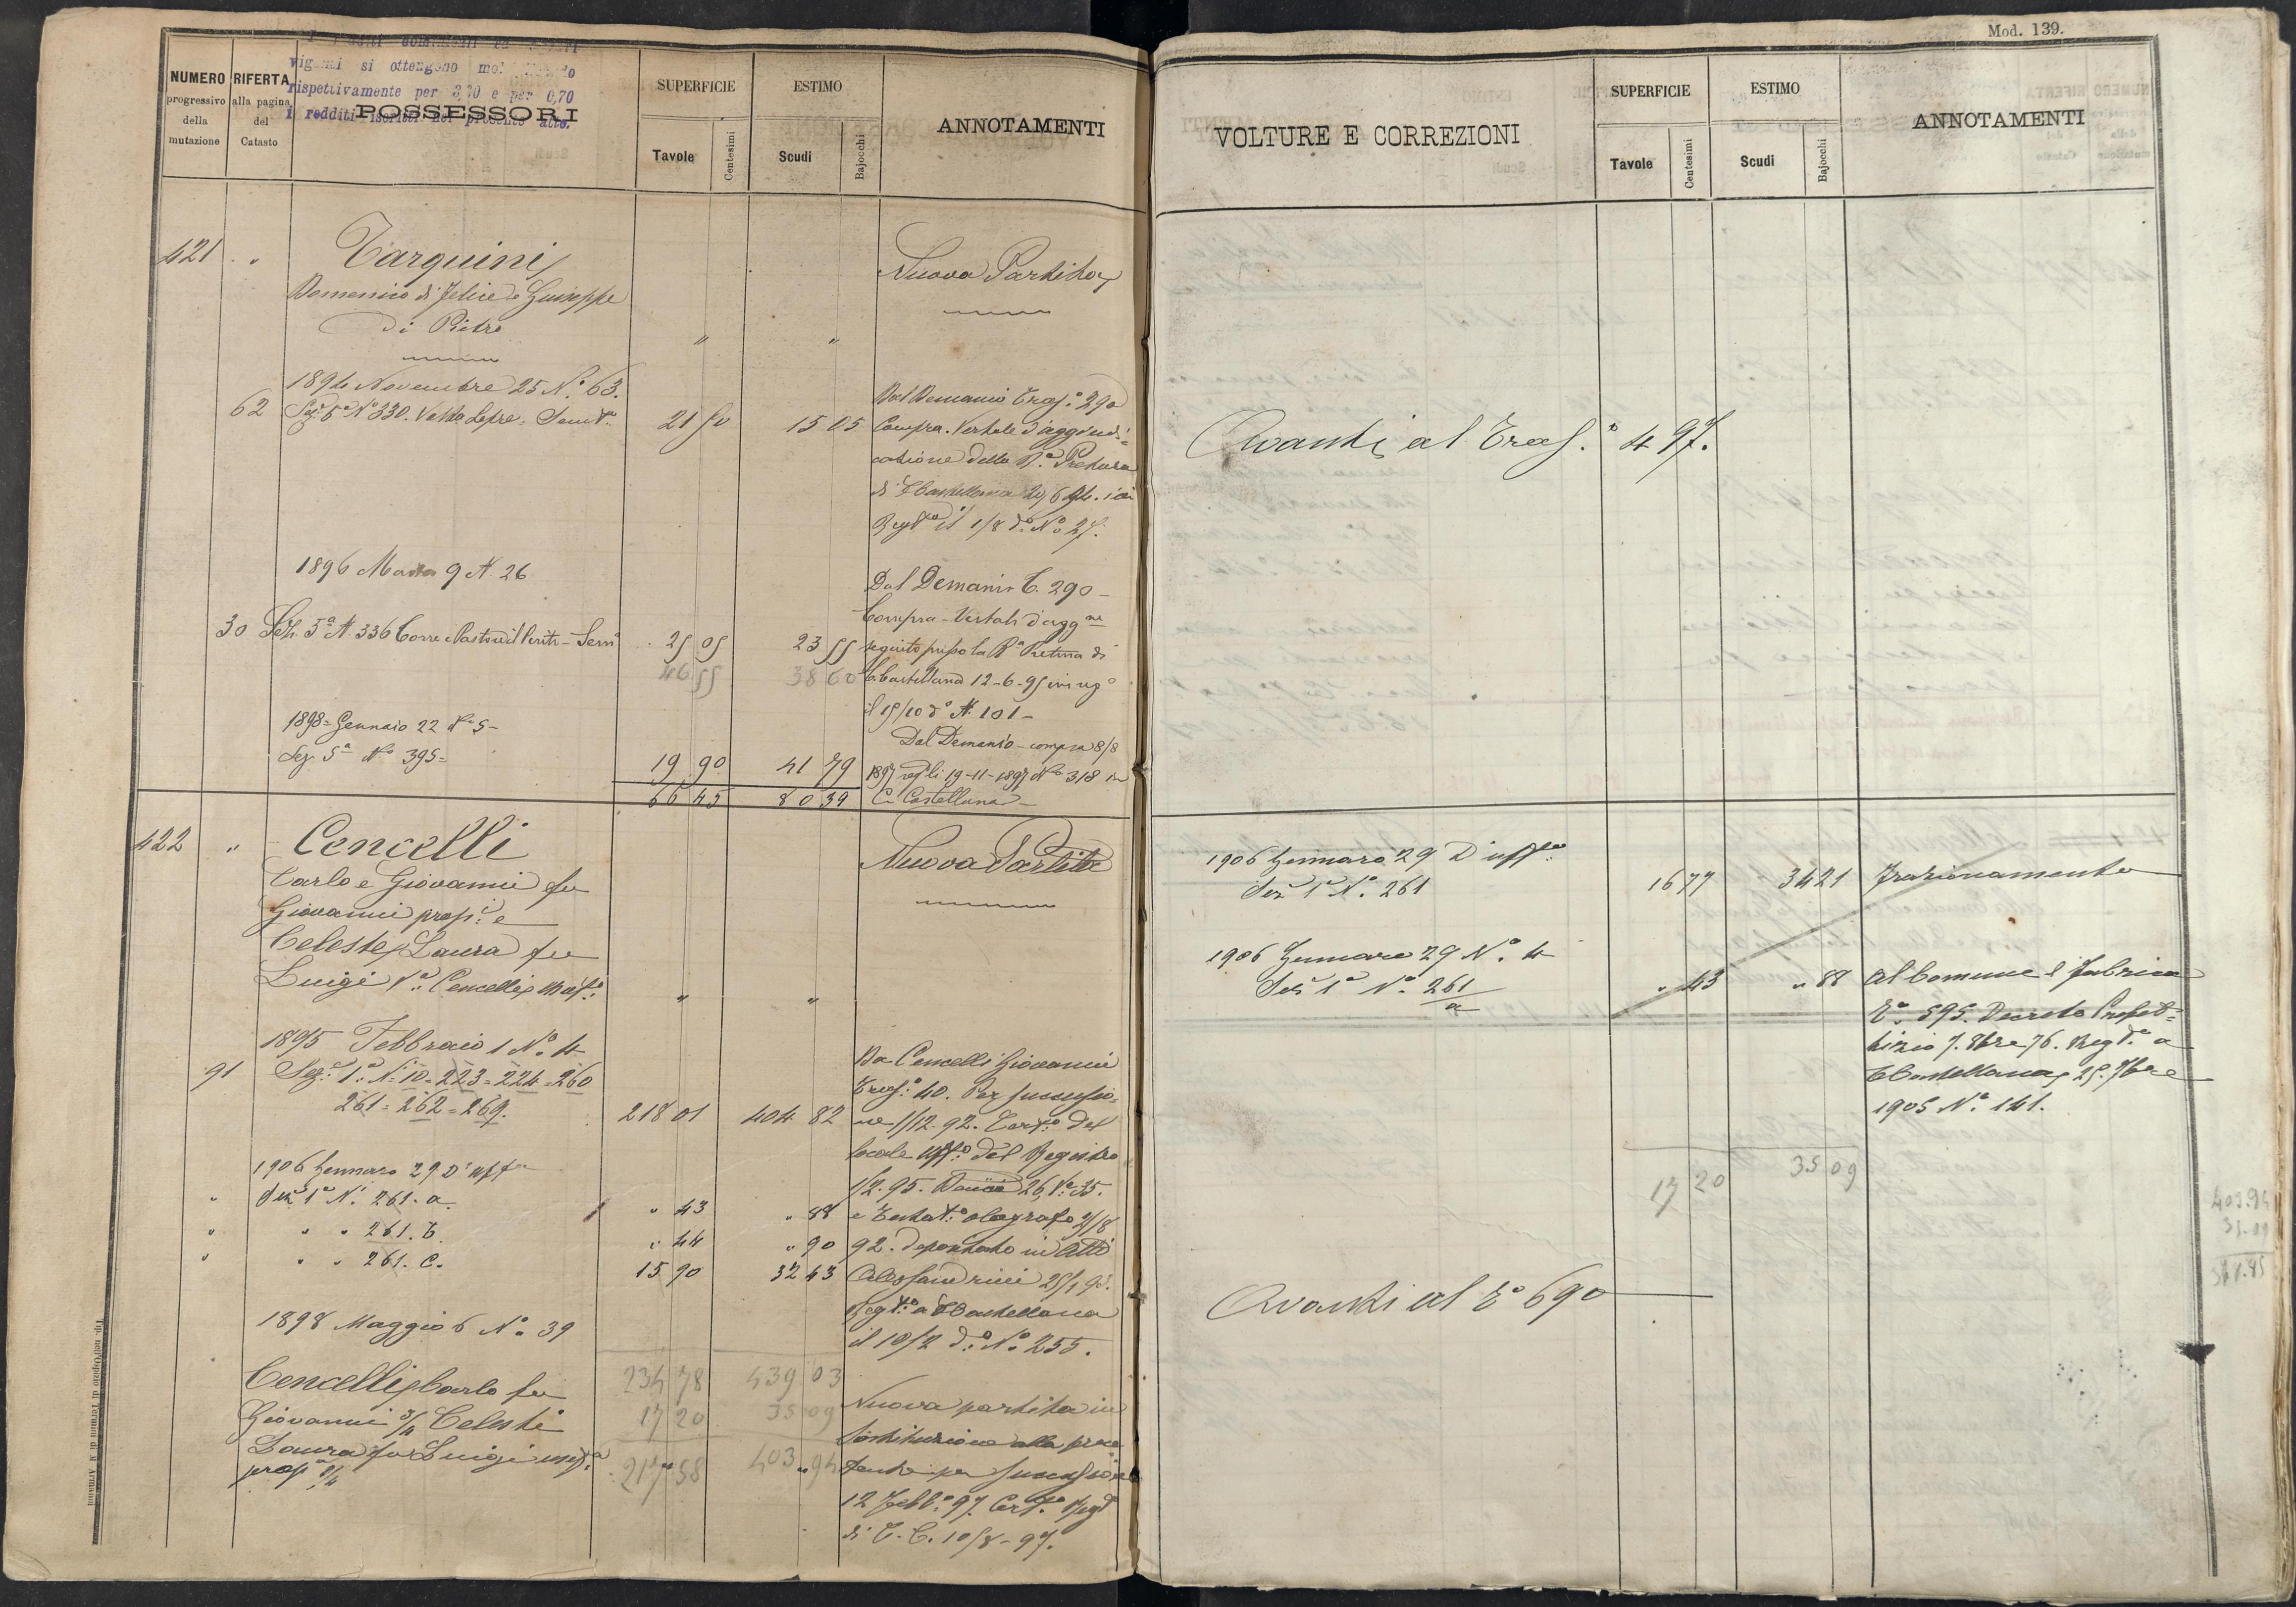 Mod. 139.
vigenti si ottengono
rispettivamente per 3,70 e per 0,70
i redditi iscritti nel presente atto.
NUMERO progressivo della mutazione
RIFERTA alla pagina del Catasto
POSSESSORI
SUPERFICIE
Tavole
Centesimi
ESTIMO
Scudi
Bajocchi
ANNOTAMENTI
421 " Tarquini Nuova Partita
Domenico di Felice e Giuseppe
di Pietro
" "
1894 Novembre 25 N.° 63. Dal Demanio Trasp.° 290
62 Sez.e 5a N° 330. Valle Lepre = Semt.o 21 50 15 05 Compra. Verbale d'aggiudi=
cazione della R.a Pretura
di C Castellana
Regt.o il 1/8 d.° N.° 27.
1896 Marzo 9 N. 26 Dal Demanio T. 290 -
Compra - Verbale d'aggne
30 Sez. 5a N. 336 - Sem 25 05 23 55 seguito presso la Ra Pretura di
46 55 38 60 C. Castellana 12-6-95 ivi rego
il 15/10 d° N. 101 -
1898 = Gennaio 22 N° 5 - Dal Demanio - compra 8/8
Sez. 5a No 395 = 19 90 41 79 1897 regli 19-11-1897 No 318 in
66 45 80 39 C. Castellana -
422 " Cencelli Nuova Partita
Carlo e Giovanni fu
Giovanni prop.i e
Celeste Laura fu
Luigi V.a Cencelli Usuf.a
" "
1895 Febbraio 1 N.° 4 Da Cencelli Giovanni
91 Sez.e 1.a N.i 10 = 223 = 224 = 260 Trasp.° 40. Per successio=
261 = 262 = 269. 218 01 404 82 ne 1/12.92. Cert.o del
locale Uff.o del Registro
1906 Gennaro 29 D'uff.o 1/2.95. 26, N.° 35.
" Sez.e 1a N.i 261.a. " 43 " 88 e Testat.o olografo 2/18
" " " 261.b. " 44 " 90 92. depositato in Atti
" " " 261.c. 15 90 32 43 Alessandrini
Regt.o a C Castellana
1898 Maggio 6 N.° 39 il 10/2 d.° N.° 255.
234 78 439 03
Cencelli Carlo fu 17 20 35 09 Nuova partita in
Giovanni 3/4 Celesti 217 58 403 94 sostituzione alla prece
Laura fu Luigi usuf.a dente per successione
prop.a 1/4 12 Febb.° 97. Cert.o Regt
di C. C. 10/8-97.
Tip. nell'Ospizio di Termini di M. Armanni
VOLTURE E CORREZIONI
SUPERFICIE
Tavole
Centesimi
ESTIMO
Scudi
Bajocchi
ANNOTAMENTI
Avanti al Trasp.° 497.
1906 Gennaro 29 D'uff.o
Sez.e 1a N.° 261 16 77 34 21 Frazionamento
1906 Gennaro 29 N.° 4
Sez.e 1a N.° 261/a " 43 " 88 Al Comune di Fabrica
T.° 595. Decreto Prefet=
tizio 7. 8bre 76. Regt.o a
C Castellana, 25. 7bre
1905 N.° 141.
17 20 35 09
403.94
35.09
Avanti al T.° 690